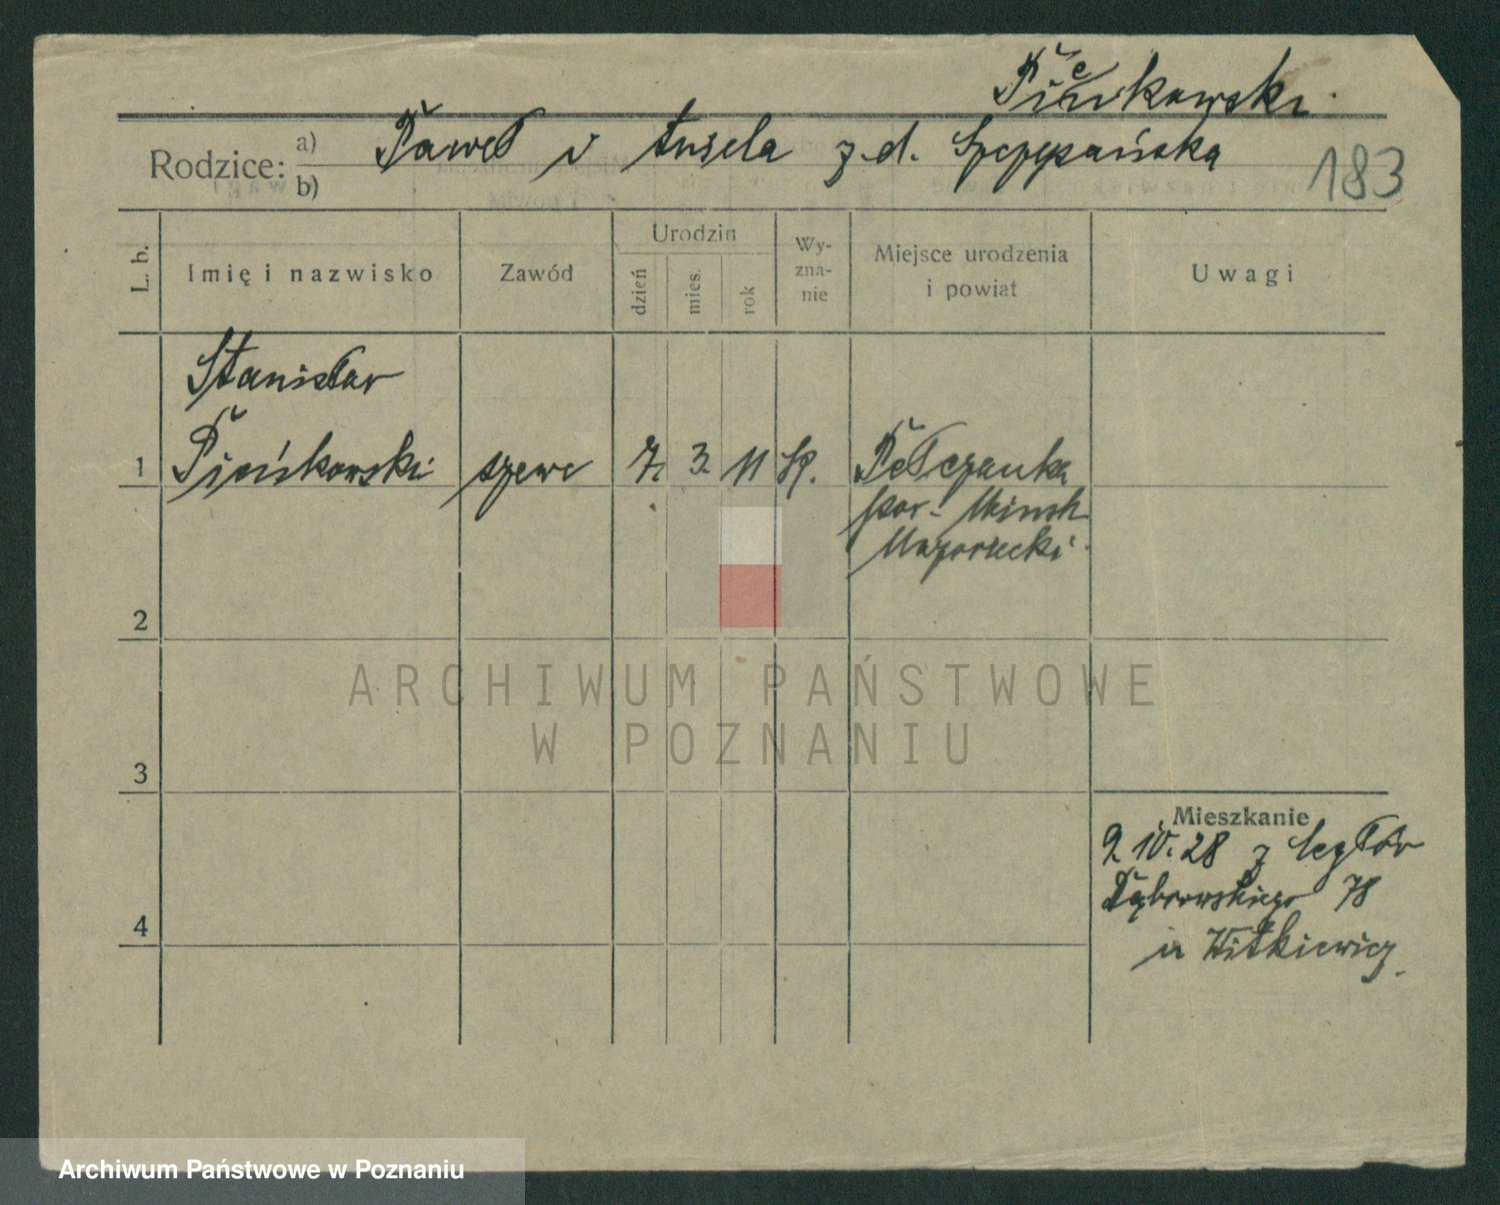 Pieńkowski
Rodzice: a) Paweł i Aniela z.d. Szczepańska
b)
183
L. b. Imię i nazwisko Zawód Urodzin dzień mies. rok Wyznanie Miejsce urodzenia i powiat Uwagi
Stanisław
1 Pieńkowski szewc 7. 3. 11 Kt. Pełczanka
pow. Mińsk
Mazowiecki
2
3
Mieszkanie
9. IV. 28 z
Dąbrowskiego 78
4
u Witkiewicz
ARCHIWUM PAŃSTWOWE
W POZNANIU
Archiwum Państwowe w Poznaniu